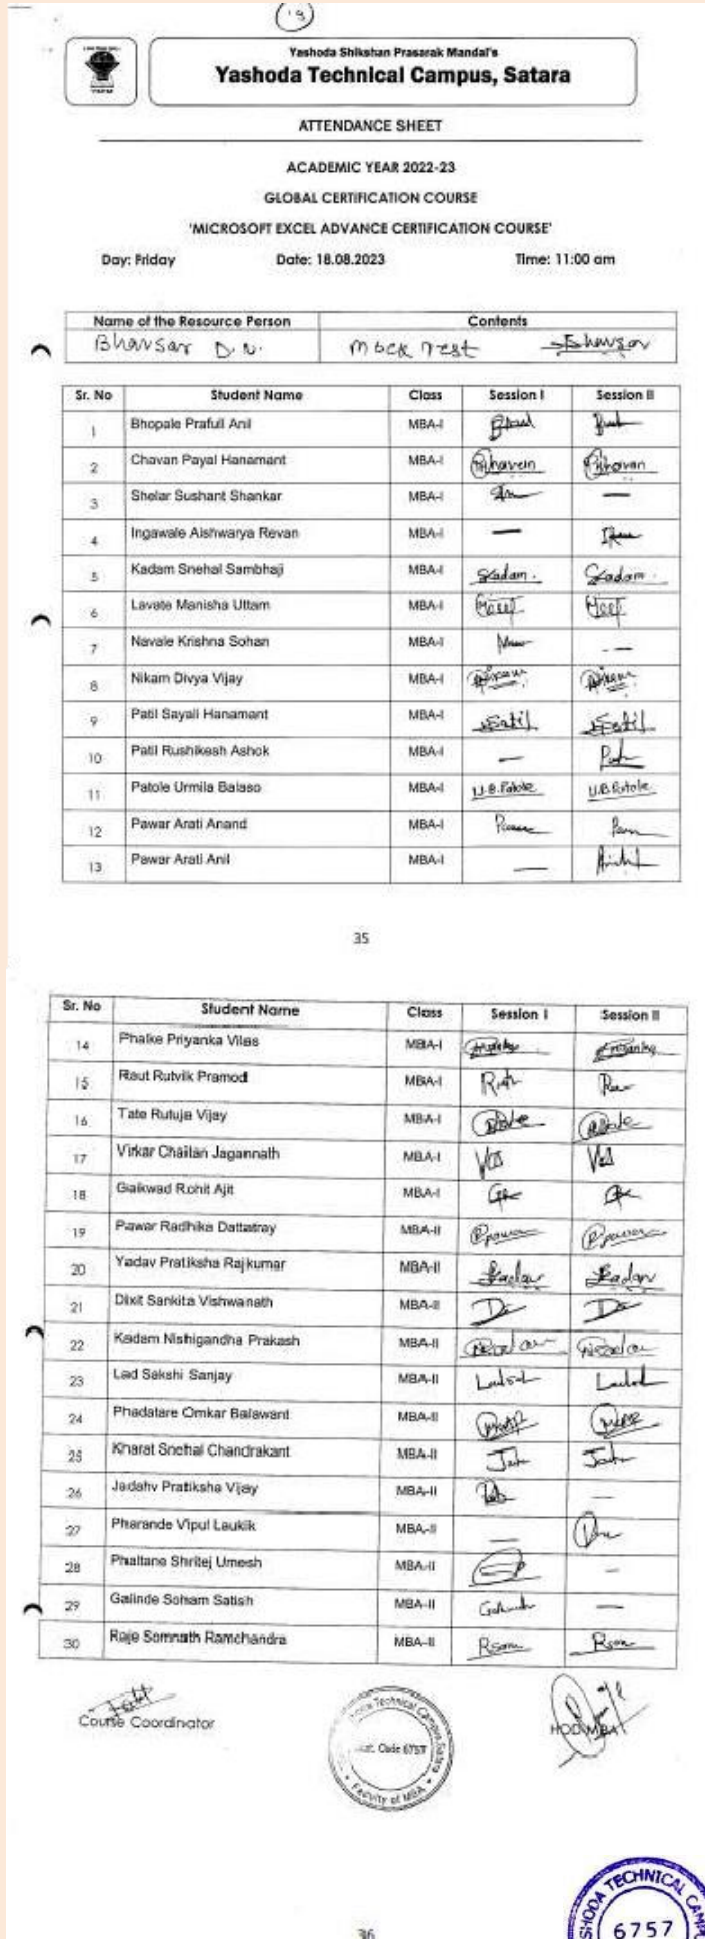 19
Yashoda Shikshan Prasarak Mandal's
Yashoda Technical Campus, Satara
ATTENDANCE SHEET
ACADEMIC YEAR 2022-23
GLOBAL CERTIFICATION COURSE
'MICROSOFT EXCEL ADVANCE CERTIFICATION COURSE'
Day: Friday Date: 18.08.2023 Time: 11:00 am
Name of the Resource Person Contents
Bhavsar D.N. Mock Test Bhavsar
Sr. No Student Name Class Session I Session II
1 Bhopale Prafull Anil MBA-I
2 Chavan Payal Hanamant MBA-I Chavan
3 Shelar Sushant Shankar MBA-I —
4 Ingawale Aishwarya Revan MBA-I —
5 Kadam Snehal Sambhaji MBA-I SKadam. SKadam.
6 Lavate Manisha Uttam MBA-I
7 Navale Krishna Sohan MBA-I --
8 Nikam Divya Vijay MBA-I
9 Patil Sayali Hanamant MBA-I SPatil SPatil
10 Patil Rushikesh Ashok MBA-I —
11 Patole Urmila Balaso MBA-I U.B.Patole U.B.Patole
12 Pawar Arati Anand MBA-I
13 Pawar Arati Anil MBA-I —
35
Sr. No Student Name Class Session I Session II
14 Phalke Priyanka Vilas MBA-I
15 Raut Rutvik Pramod MBA-I
16 Tate Rutuja Vijay MBA-I
17 Virkar Chaitan Jagannath MBA-I
18 Gaikwad Rohit Ajit MBA-I
19 Pawar Radhika Dattatray MBA-II RPawar RPawar
20 Yadav Pratiksha Rajkumar MBA-II
21 Dixit Sankita Vishwanath MBA-II
22 Kadam Nishigandha Prakash MBA-II
23 Lad Sakshi Sanjay MBA-II
24 Phadatare Omkar Balawant MBA-II
25 Kharat Snehal Chandrakant MBA-II
26 Jadahv Pratiksha Vijay MBA-II —
27 Pharande Vipul Laukik MBA-II —
28 Phaltane Shritej Umesh MBA-II —
29 Galinde Soham Satish MBA-II —
30 Raje Somnath Ramchandra MBA-II
Course Coordinator HOD MBA
Technical Campus, Satara
Code 6757
Faculty of MBA
SHODA TECHNICAL CAMP
6757
36